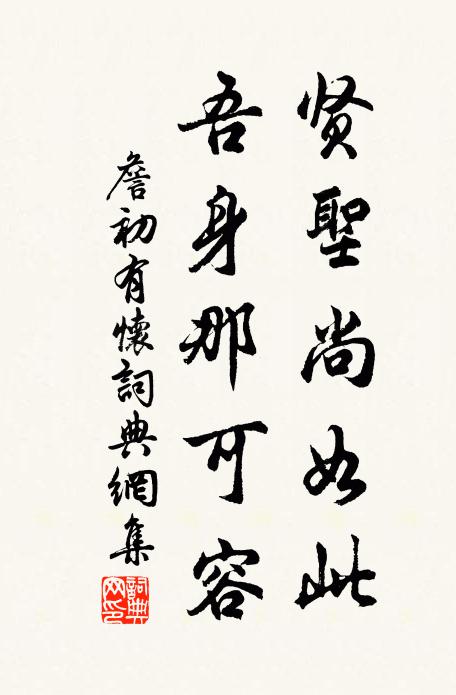 贤聖尚如此
吾身那可容
詹初有懷詞典網集
詞典
网印